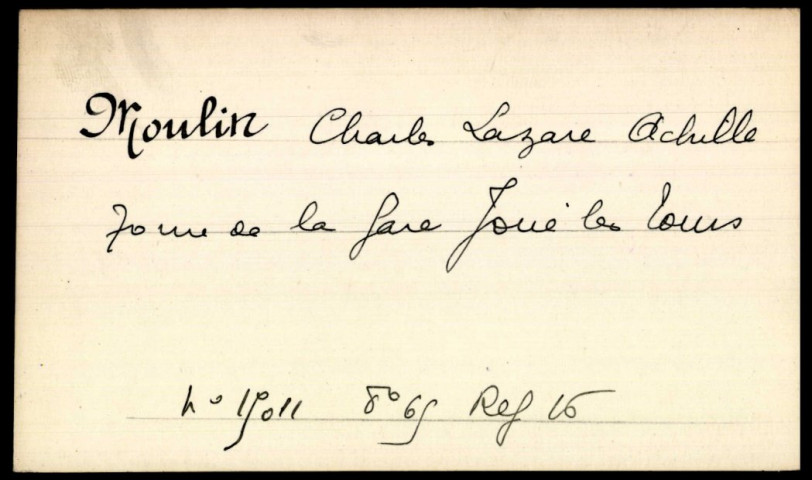 Moulin Charles Lazare Achille
70 rue de la Gare Joué les Tours
no 15011 Fo 65 Reg 16